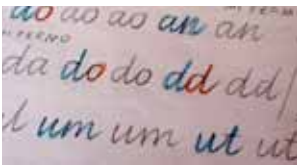 ao ao ao an an
da do do dd dd
um um ut ut